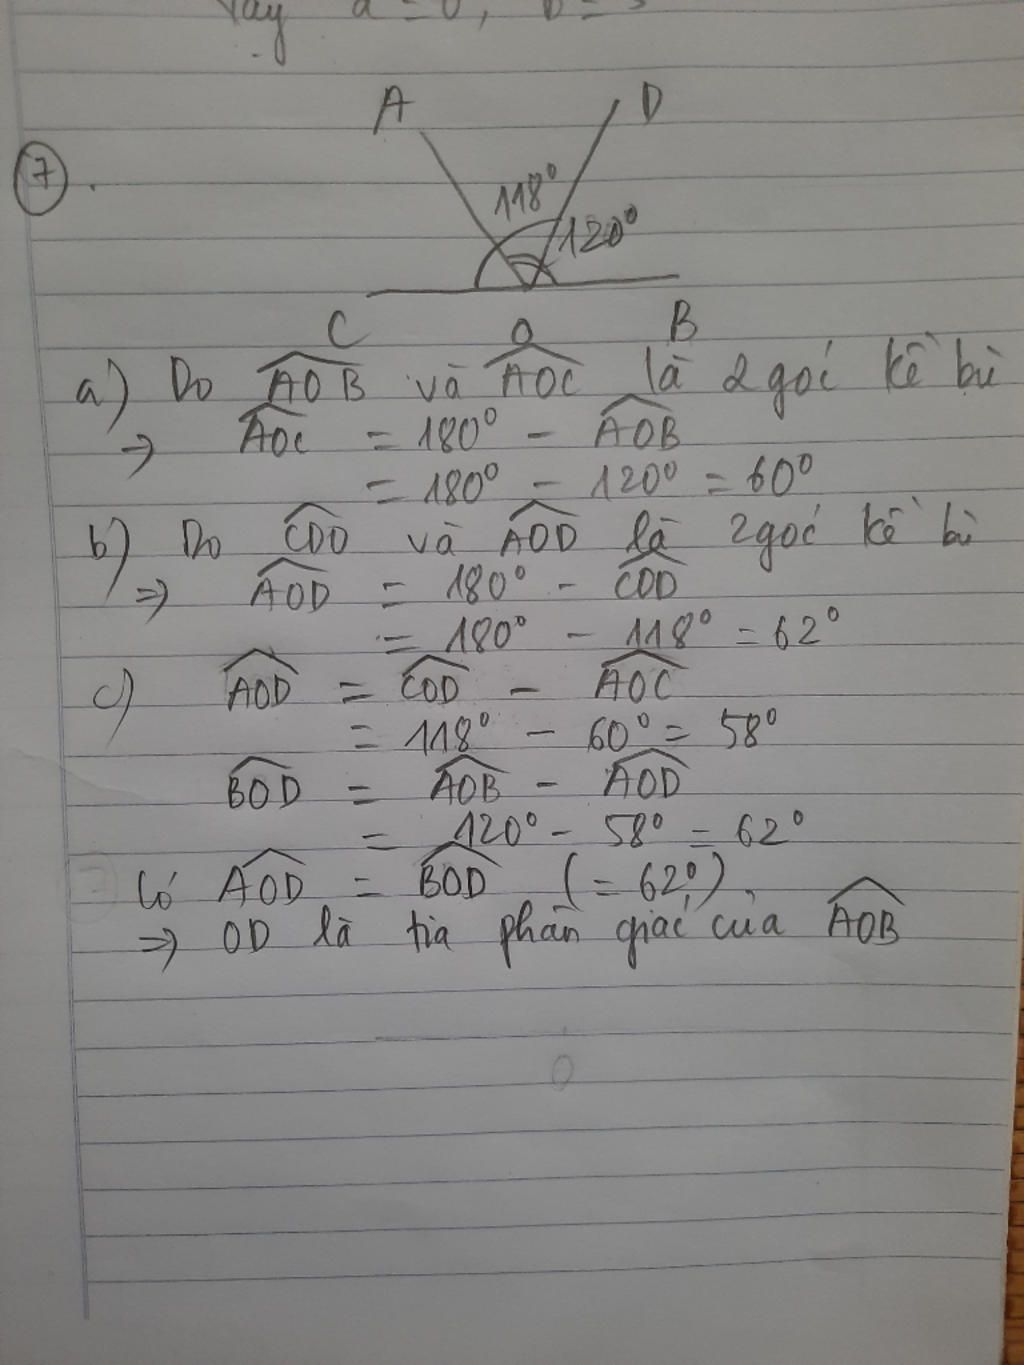 Vậy a = 0, b =
7.
A
D
118°
120°
C
O
B
a) Do AOB và AOC là 2 goć kề bù
⇒ AOC = 180° - AOB
= 180° - 120° = 60°
b) Do COD và AOD là 2 goć kề bù
⇒ AOD = 180° - COD
= 180° - 118° = 62°
c) AOD = COD - AOC
= 118° - 60° = 58°
BOD = AOB - AOD
= 120° - 58° = 62°
Có AOD = BOD (= 62°)
⇒ OD là tia phân giác của AOB